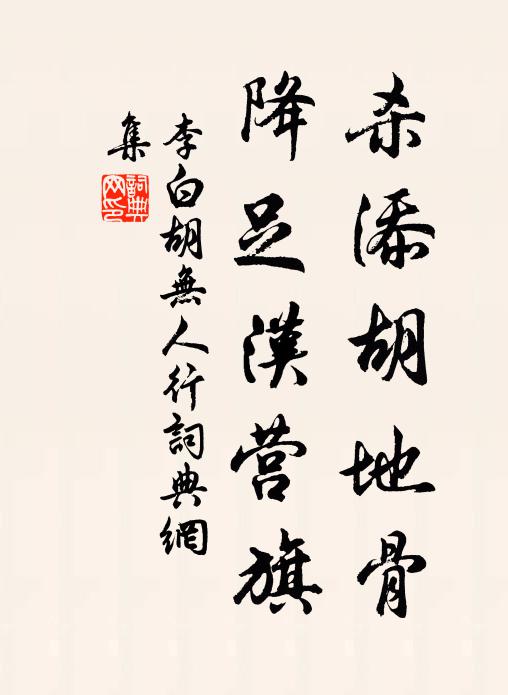 杀添胡地骨
降足漢营旗
李白胡無人行詞典網
集
詞典網印